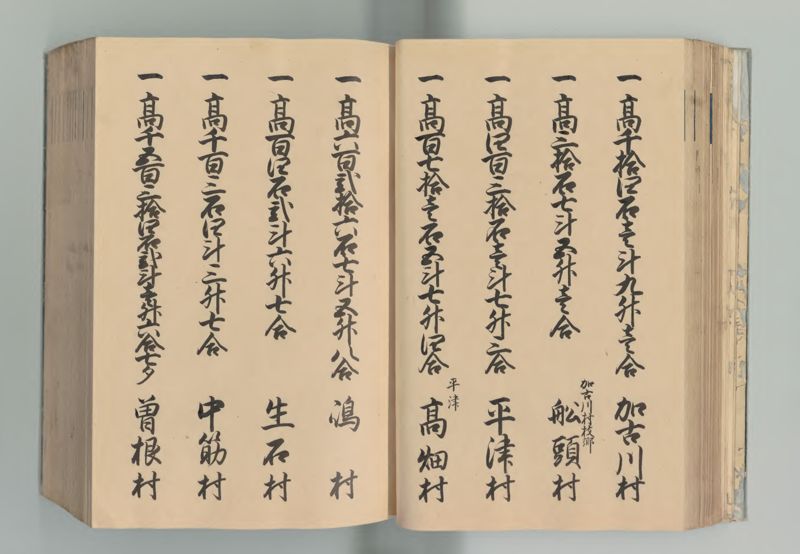 一高千拾四石壱斗九升壱合 加古川村
一高三拾石七斗五升壱合 加古川村枝郷 舩頭村
一高四百三拾石壱斗七升三合 平津村
一高百七拾壱石五斗七升四合 平津 高畑村
一高六百弐拾六石七斗五升八合 村
一高百四石弐斗六升七合 生石村
一高千百三石四斗三升七合 中筋村
一高千五百三拾四石弐斗壱升六合七夕 曽根村